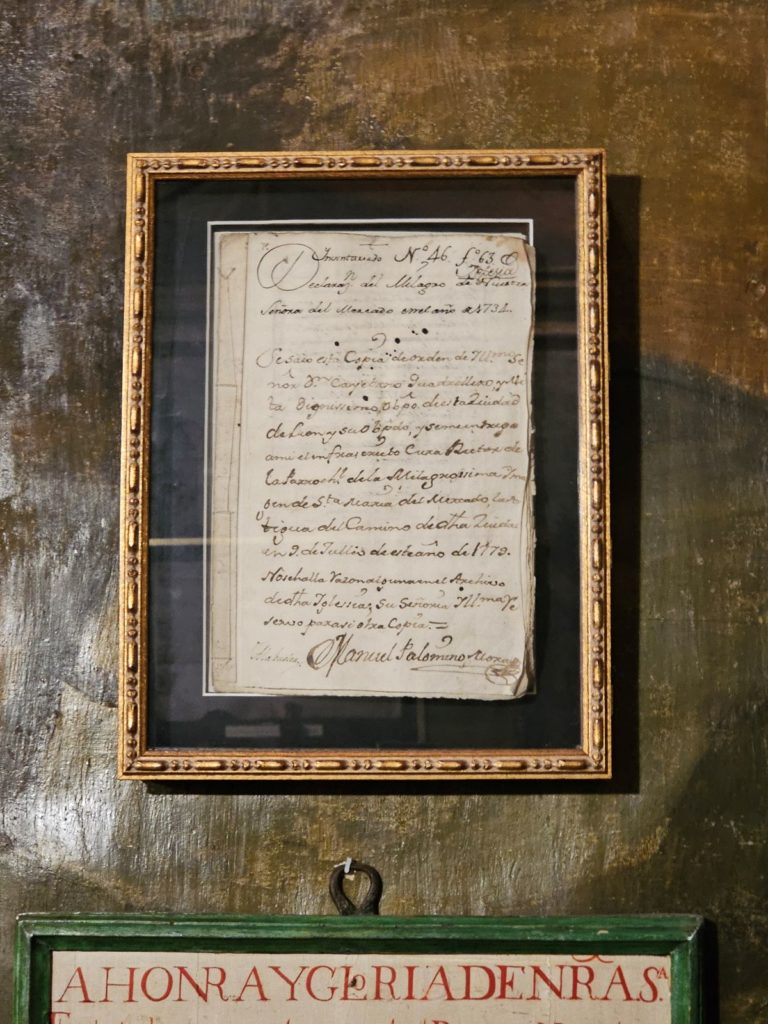 Inventariado Nº 46. fº 63
Declaraⁿ del Milagro de Nuestra
Señora del Mercado enel año de 1734.
Se saco esta Copia de orden de Illmo Se
ñor Dⁿ Cayetano Quadrillero, y Mo
ta Dignissimo, Obpo. de esta Ziudad
de Leon y su Obpdo, y seme entrego
ami el infraescrito Cura Rector de
la Parrochl. de la Milagrosima Ima
gen de Sta Maria del Mercado, la An
tigua del Camino de dha Ziudad
en 9. de Julio de este año de 1779.
No se halla razon alguna en el Archivo
de dha Iglesia, Su Señoria Illma Re
servo para si otra Copia.=
Manuel Palomino
A HONRA Y GLRIA DE NRA S.A